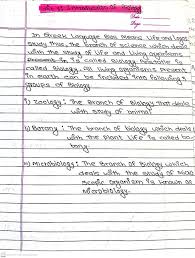 Introduction of Biology
Date
Page
In Greek Language Bios Means Life and Logos
Study thus, the branch of science which deal
with the study of Life and Living organisms
present in is called Biology
called Biology. All Living organisms present
in earth can be divided into following
groups of Biology
i) Zoology: The Branch of Biology that deals
with study of animal
ii) Botany: The branch of biology which deals
with the Plant Life is called bo-
tany.
Microbiology: The Branch of Biology which
deals with the study of Micro
scopic organism is known as
Microbiology.